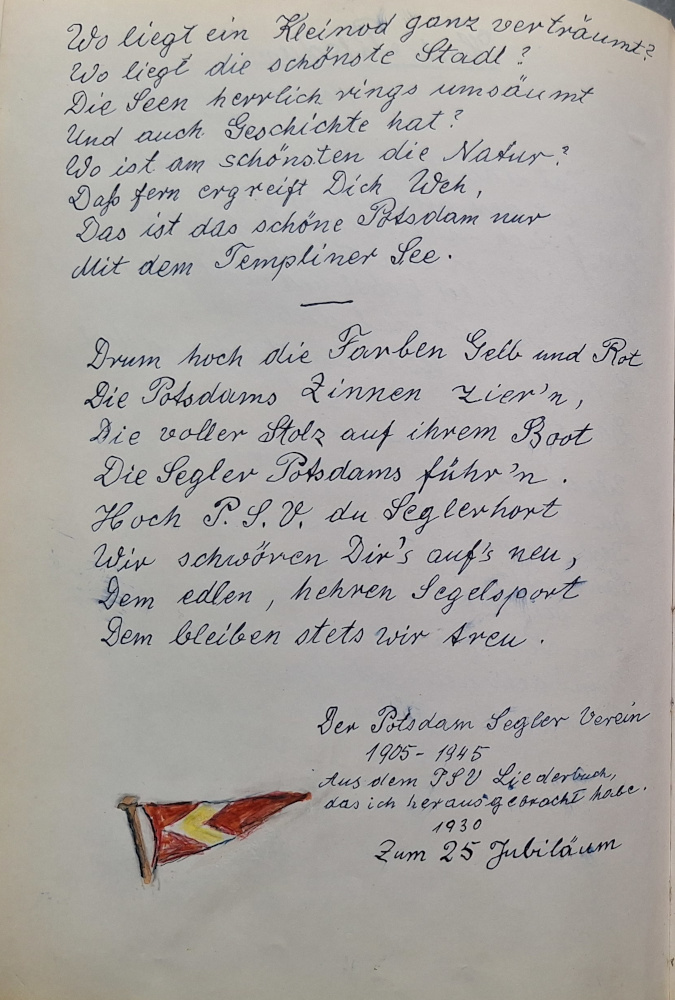 Wo liegt ein Kleinod ganz verträumt?
Wo liegt die schönste Stadt?
Die Seen herrlich rings umsäumt
Und auch Geschichte hat?
Wo ist am schönsten die Natur?
Daß fern ergreift Dich Weh,
Das ist das schöne Potsdam nur
Mit dem Templiner See.
Drum hoch die Farben Gelb und Rot
Die Potsdams Zinnen zier'n,
Die voller Stolz auf ihrem Boot
Die Segler Potsdams führ'n.
Hoch P. S. V. du Seglerhort
Wir schwören Dir's auf's neu,
Dem edlen, hehren Segelsport
Dem bleiben stets wir treu.
Der Potsdam Segler Verein
1905-1945
Aus dem PSV Liederbuch,
das ich herausgebracht habe.
1930
Zum 25 Jubiläum